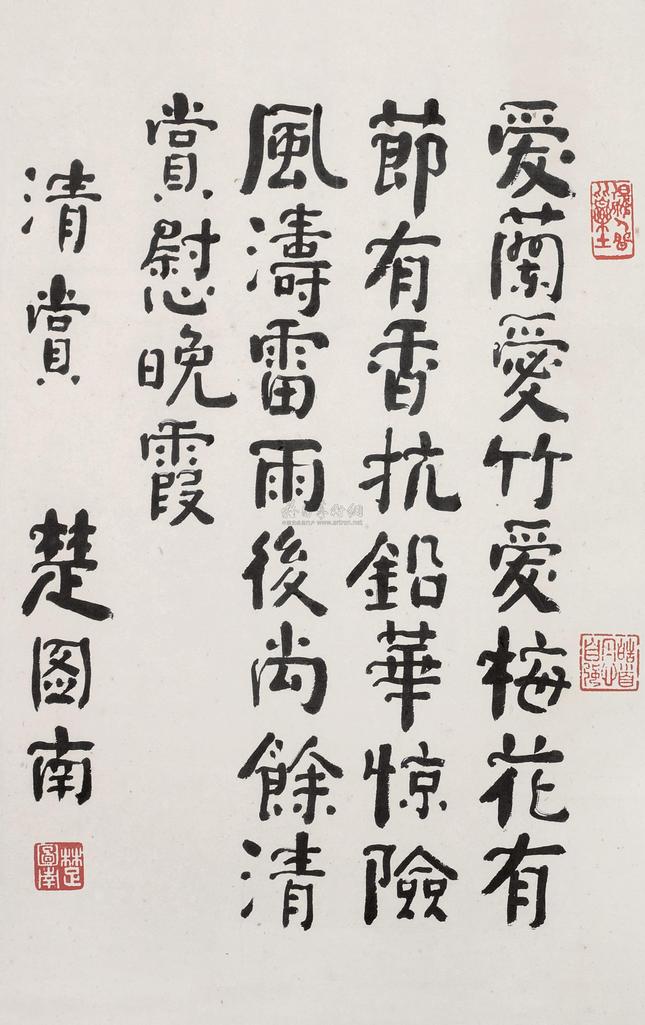 愛蘭愛竹愛梅花有
節有香抗鉛華惊險
風濤雷雨後尚餘清
賞慰晚霞
清賞
楚图南
楚圖南
www.artron.net